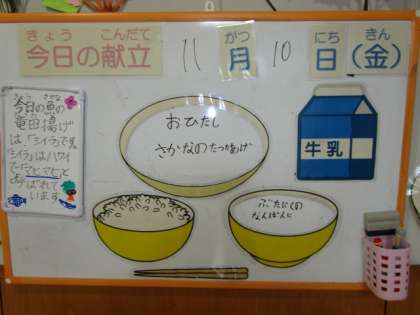 きょう こんだて
今日の献立
11
がつ
月
10
にち
日
きん
(金)
きょう さかな
今日の魚の
竜田揚げ
は、「シイラ」です。
「シイラ」はハワイ
では「マヒマヒ」と
よばれて
います
おひたし
さかなのたつたあげ
ぶたにくの
なんばんに
牛乳